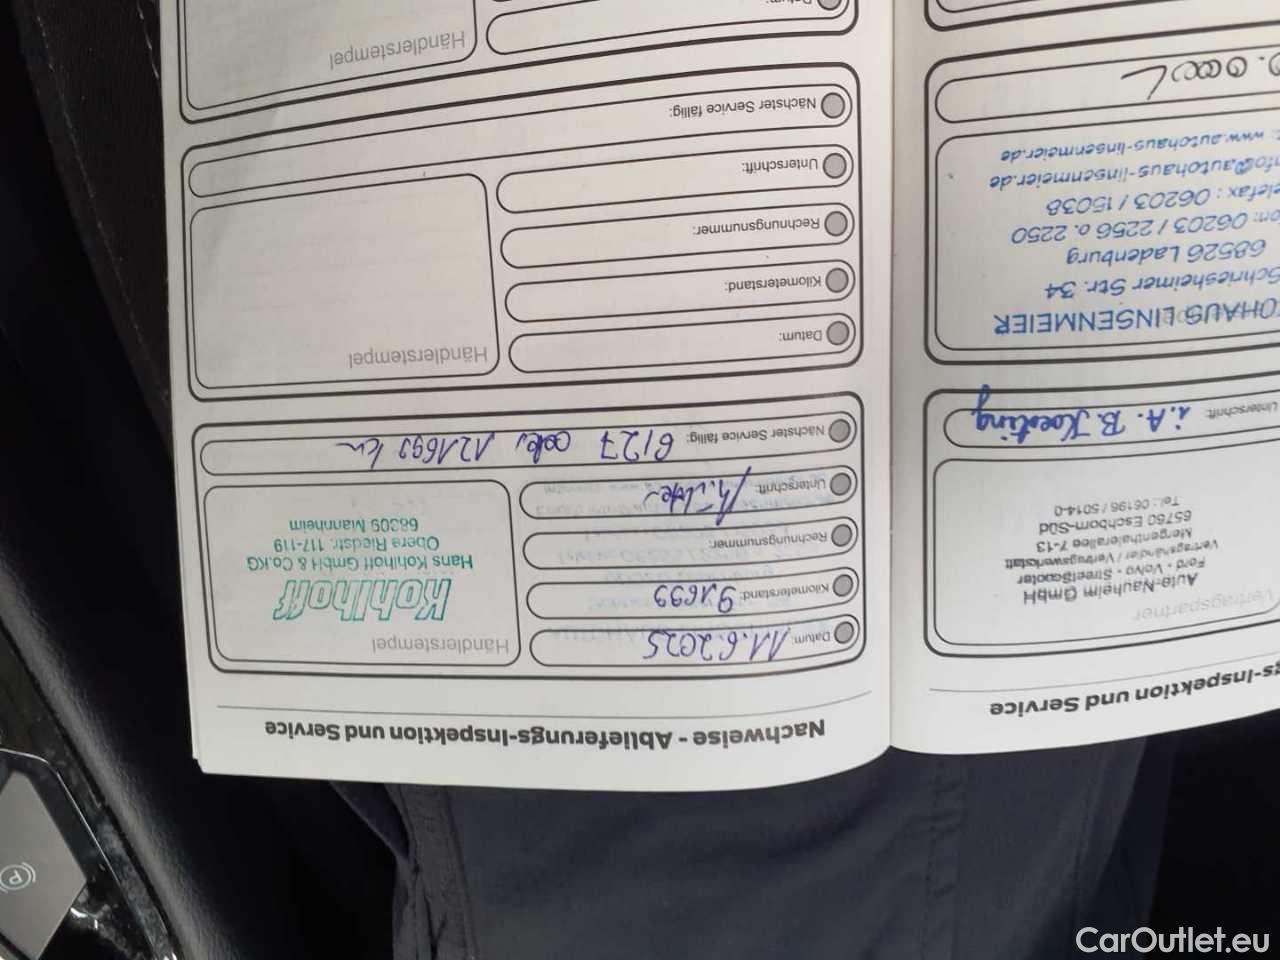 Nachweise - Ablieferungs-Inspektion und Service
Datum: 11.6.2025
Kilometerstand: 91699
Rechnungsnummer:
Unterschrift:
Nächster Service fällig: 6/27 od. 121699 km
Händlerstempel
Kohlhoff
Hans Kohlhoff GmbH & Co.KG
Obere Riedstr. 117-119
68309 Mannheim
Datum:
Kilometerstand:
Rechnungsnummer:
Unterschrift:
Nächster Service fällig:
Händlerstempel
Datum:
Händlerstempel
gs-Inspektion und Service
Vertragspartner
Auto-Nauheim GmbH
Ford - Volvo - StreetScooter
Vertragshändler / Vertragswerkstatt
Mergenthalerallee 7-13
65760 Eschborn-Süd
Tel.: 06196 / 5014-0
Unterschrift: i.A. B.
OHAUS LINSENMEIER
Schriesheimer Str. 34
68526 Ladenburg
on: 06203 / 2256 o. 2250
elefax : 06203 / 15038
nfo@autohaus-linsenmeier.de
: www.autohaus-linsenmeier.de
P
CarOutlet.eu